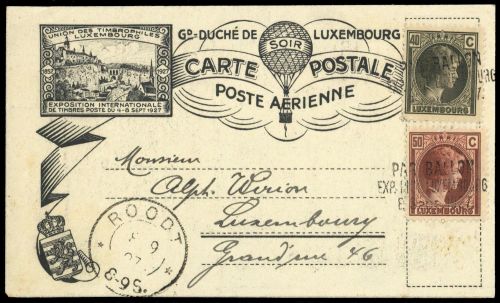 UNION DES TIMBROPHILES
LUXEMBOURG
1852 1927
EXPOSITION INTERNATIONALE
DE TIMBRES POSTE DU 4-8 SEPT 1927
Gᴅ-DUCHÉ DE LUXEMBOURG
SOIR
CARTE POSTALE
POSTE AÉRIENNE
40 C
LUXEMBOURG
BALLON
50 C
LUXEMBOURG
PAR BALLON
Monsieur
Alph.
Luxembourg
Grand'rue 46
ROODT
9
27
8-9S.